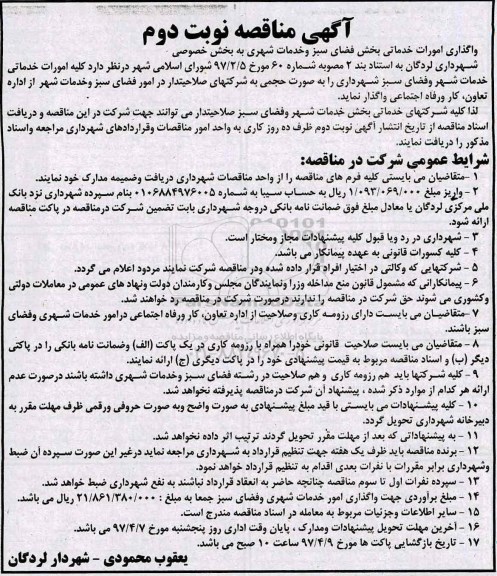 آگهی مناقصه نوبت دوم
واگذاری امورات خدماتی بخش فضای سبز وخدمات شهری به بخش خصوصی
شهرداری لردگان به استناد بند ۲ مصوبه شماره ۶۰ مورخ ۹۷/۲/۵ شورای اسلامی شهر درنظر دارد کلیه امورات خدماتی
خدمات شهر وفضای سبز شهرداری را به صورت حجمی به شرکتهای صلاحیتدار در امور فضای سبز وخدمات شهر از اداره
تعاون، کار ورفاه اجتماعی واگذار نماید.
لذا کلیه شرکتهای خدماتی بخش خدمات شهر وفضای سبز صلاحیتدار می توانند جهت شرکت در این مناقصه و دریافت
اسناد مناقصه از تاریخ انتشار آگهی نوبت دوم ظرف ده روز کاری به واحد امور مناقصات وقراردادهای شهرداری مراجعه واسناد
مذکور را دریافت نمایند.
شرایط عمومی شرکت در مناقصه:
۱ -متقاضیان می بایستی کلیه فرم های مناقصه را از واحد مناقصات شهرداری دریافت وضمیمه مدارک خود نمایند.
۲ - واریز مبلغ ۱/۰۹۳/۰۶۹/۰۰۰ ریال به حساب سیبا به شماره ۰۱۰۶۸۸۴۹۷۶۰۰۵ بنام سپرده شهرداری نزد بانک
ملی مرکزی لردگان یا معادل مبلغ فوق ضمانت نامه بانکی دروجه شهرداری بابت تضمین شرکت درمناقصه در پاکت مناقصه
ارائه شود.
۳ - شهرداری در رد ویا قبول کلیه پیشنهادات مجاز ومختار است.
۴ - کلیه کسورات قانونی به عهده پیمانکار می باشد.
۵ - شرکتهایی که وکالتی در اختیار افراد قرار داده شده ودر مناقصه شرکت نمایند مردود اعلام می گردد.
۶ - پیمانکارانی که مشمول قانون منع مداخله وزرا ونمایندگان مجلس وکارمندان دولت ونهاد های عمومی در معاملات دولتی
وکشوری می شوند حق شرکت در مناقصه را ندارند درصورت شرکت در مناقصه رد خواهند شد.
۷ -متقاضیان می بایست دارای رزومه کاری وصلاحیت از اداره تعاون، کار ورفاه اجتماعی درامور خدمات شهری وفضای
سبز باشند.
۸ - متقاضیان می بایست صلاحیت قانونی خودرا همراه با رزومه کاری در یک پاکت (الف) وضمانت نامه بانکی را در پاکتی
دیگر (ب) و اسناد مناقصه مربوط به قیمت پیشنهادی خود را در پاکت دیگری (ج) ارائه نمایند.
۹ - کلیه شرکتها باید هم رزومه کاری و هم صلاحیت در رشته فضای سبز وخدمات شهری داشته باشند درصورت عدم
ارائه هر کدام از موارد ذکر شده ، پیشنهاد آن شرکت درمناقصه پذیرفته نخواهد شد.
۱۰ - کلیه پیشنهادات می بایستی با قید مبلغ پیشنهادی به صورت واضح وبه صورت حروفی ورقمی ظرف مهلت مقرر به
دبیرخانه شهرداری تحویل گردد.
۱۱ - به پیشنهاداتی که بعد از مهلت مقرر تحویل گردند ترتیب اثر داده نخواهد شد.
۱۲ - برنده مناقصه باید ظرف یک هفته جهت تنظیم قرارداد به شهرداری مراجعه نماید درغیر این صورت سپرده آن ضبط
وشهرداری برابر مقررات با نفرات بعدی اقدام به تنظیم قرارداد خواهد نمود.
۱۳ - سپرده نفرات اول تا سوم مناقصه چنانچه حاضر به انعقاد قرارداد نباشند به نفع شهرداری ضبط خواهد شد.
۱۴ - مبلغ برآوردی جهت واگذاری امور خدمات شهری وفضای سبز جمعا به مبلغ : ۲۱/۸۶۱/۳۸۰/۰۰۰ ریال می باشد.
۱۵ - سایر اطلاعات وجزئیات مربوط به معامله در اسناد مناقصه مندرج است.
۱۶ - آخرین مهلت تحویل پیشنهادات ومدارک ، پایان وقت اداری روز پنجشنبه مورخ ۹۷/۴/۷ می باشد.
۱۷ - تاریخ بازگشایی پاکت ها مورخ ۹۷/۴/۹ ساعت ۱۰ صبح می باشد.
یعقوب محمودی - شهردار لردگان